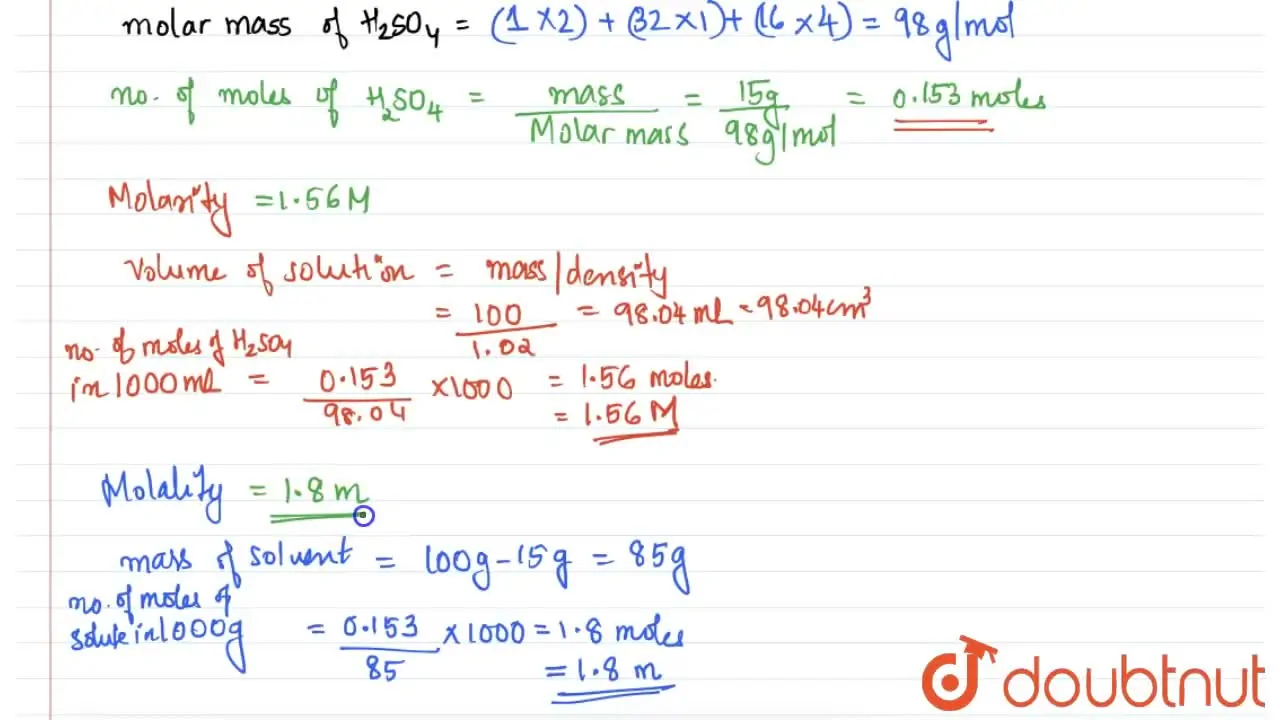 molar mass of H₂SO₄ = (1×2) + (32×1) + (16×4) = 98g/mol
no. of moles of H₂SO₄ = mass/Molar mass = 15g/98g/mol = 0.153 moles
Molarity = 1.56 M
Volume of solution = mass/density
= 100/1.02 = 98.04 mL = 98.04 cm³
no. of moles of H₂SO₄
in 1000 mL = 0.153/98.04 ×1000 = 1.56 moles.
= 1.56 M
Molality = 1.8 m
mass of solvent = 100g - 15g = 85g
no. of moles of
solute in 1000g = 0.153/85 ×1000 = 1.8 moles
= 1.8 m
doubtnut